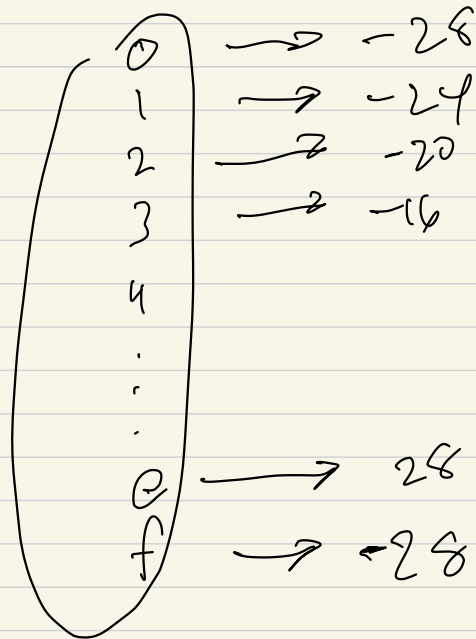 0 → -28
1 → -24
2 → -20
3 → -16
4
.
.
.
e → 28
f → -28